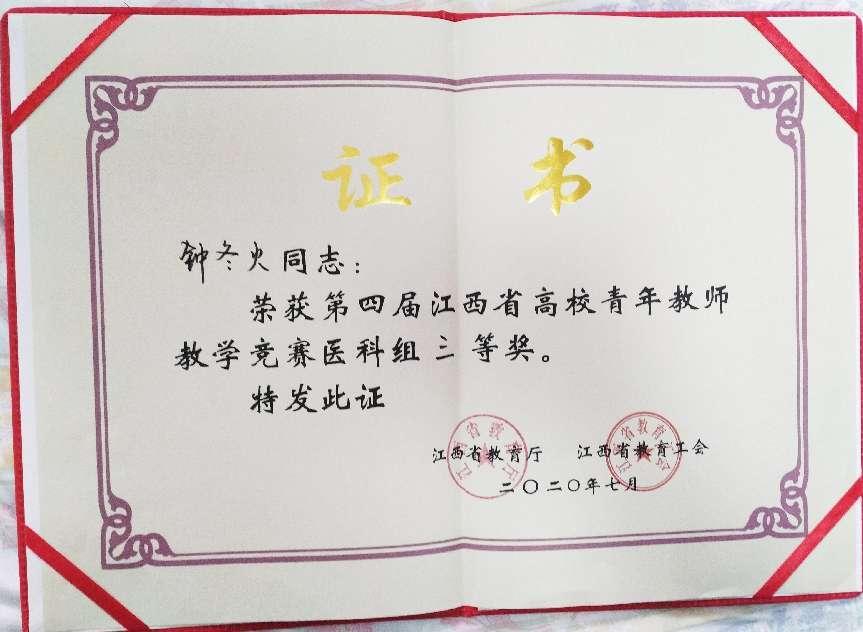 证书
钟冬火同志：
荣获第四届江西省高校青年教师
教学竞赛医科组三等奖。
特发此证
江西省教育厅 江西省教育工会
二〇二〇年七月
江西省教育厅
江西省教育工会